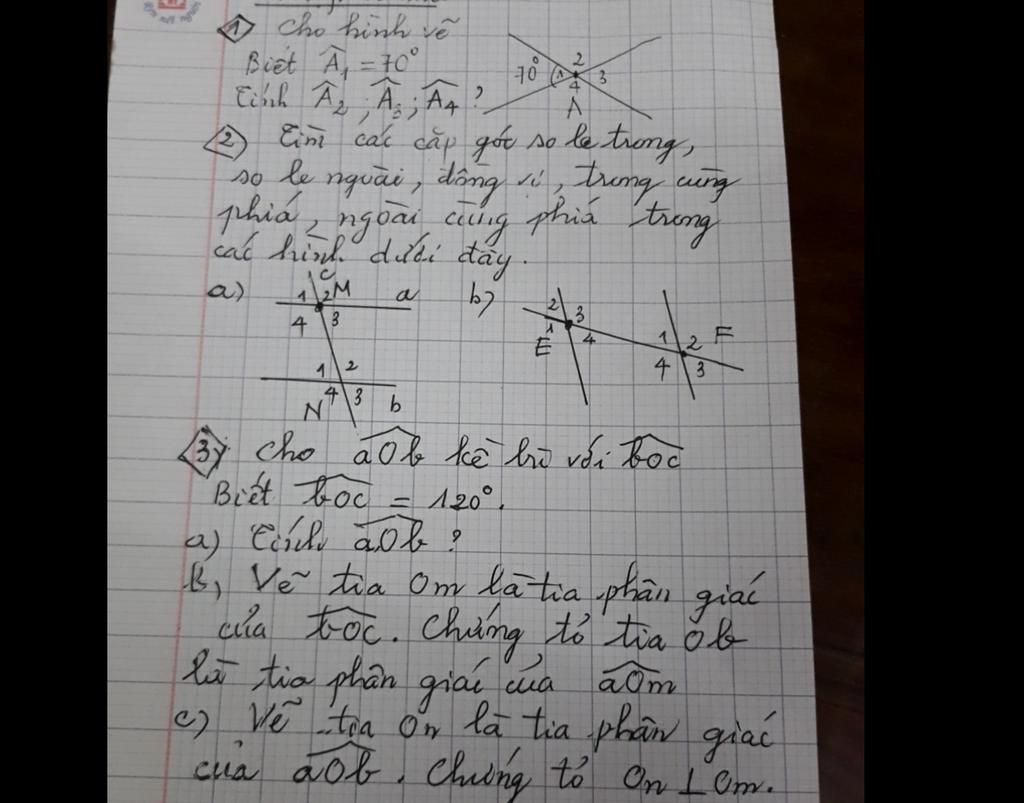 1 Cho hình vẽ
Biết Â₁ = 70°
Tính Â₂; Â₃; Â₄?
70° 1 2 3 4 A
2 Tìm các cặp góc so le trong,
so le ngoài, đồng vị, trong cùng
phía, ngoài cùng phía trong
các hình dưới đây.
a) c 1 2 M a 4 3 1 2 4 3 N b
b) 2 3 1 4 E 1 2 F 4 3
3, Cho aOb kề bù với bOc
Biết bOc = 120°.
a) Tính aOb?
b, Vẽ tia Om là tia phân giác
của bOc. Chứng tỏ tia Ob
là tia phân giác của aOm
c) Vẽ tia On là tia phân giác
của aOb. Chứng tỏ On ⊥ Om.